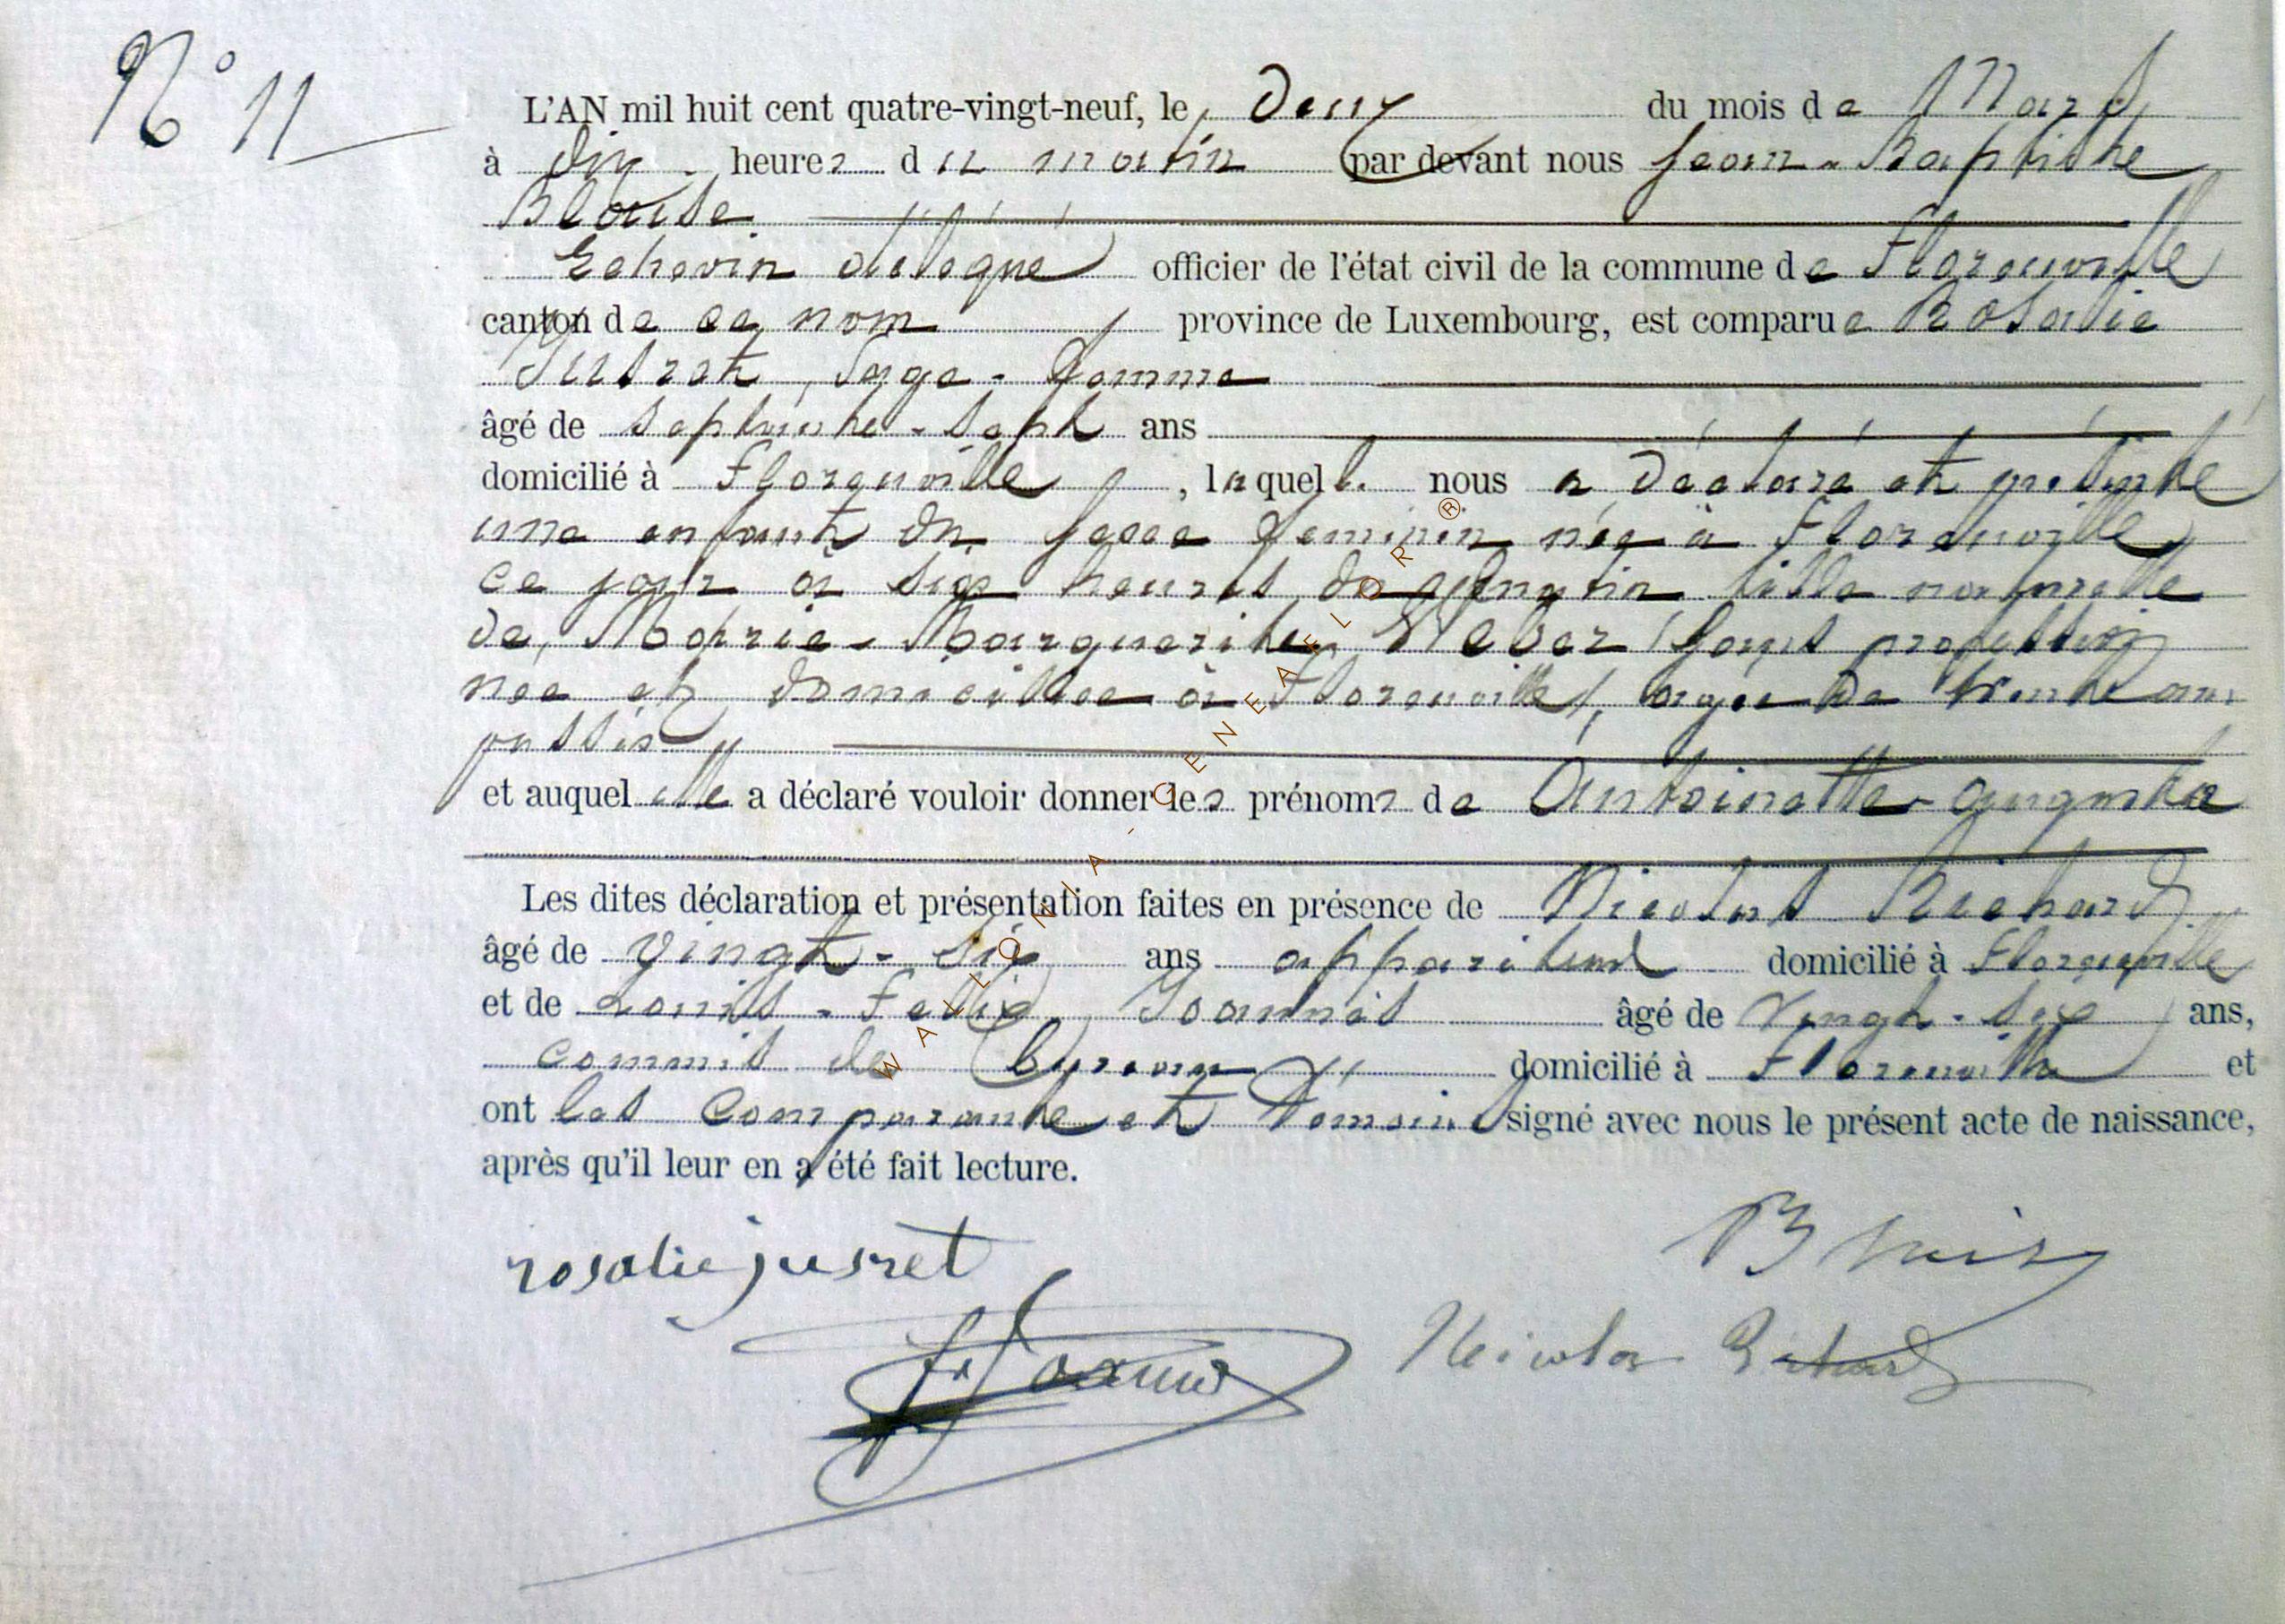 N° 11
L'AN mil huit cent quatre-vingt-neuf, le Deux du mois de Mars
à dix heures du matin par devant nous Jean-Baptiste
Blaise
Echevin délégué officier de l'état civil de la commune de Florenville
canton de ce nom province de Luxembourg, est comparue Rosalie
Jusret, Sage-femme
âgé de septante-sept ans
domicilié à Florenville, laquelle nous a déclaré et présenté
une enfant du sexe féminin née à Florenville
ce jour à six heures du matin fille naturelle
de Marie-Marguerite Weber sans profession
née et domiciliée à Florenville, âgée de trente ans
passés
et auquel elle a déclaré vouloir donner les prénoms de Antoinette-Augusta
Les dites déclaration et présentation faites en présence de Nicolas Richard
âgé de vingt-six ans appariteur domicilié à Florenville
et de Louis-Félix Joannès âgé de vingt-six ans,
commis de bureau domicilié à Florenville et
ont les comparante et témoins signé avec nous le présent acte de naissance,
après qu'il leur en a été fait lecture.
rosalie jusret
Nicolas Richard
WALLONIA-GENEAFLOR®